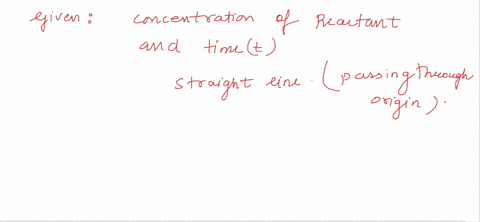 Given: concentration of Reactant
and time (t)
straight line. (passing through
origin).